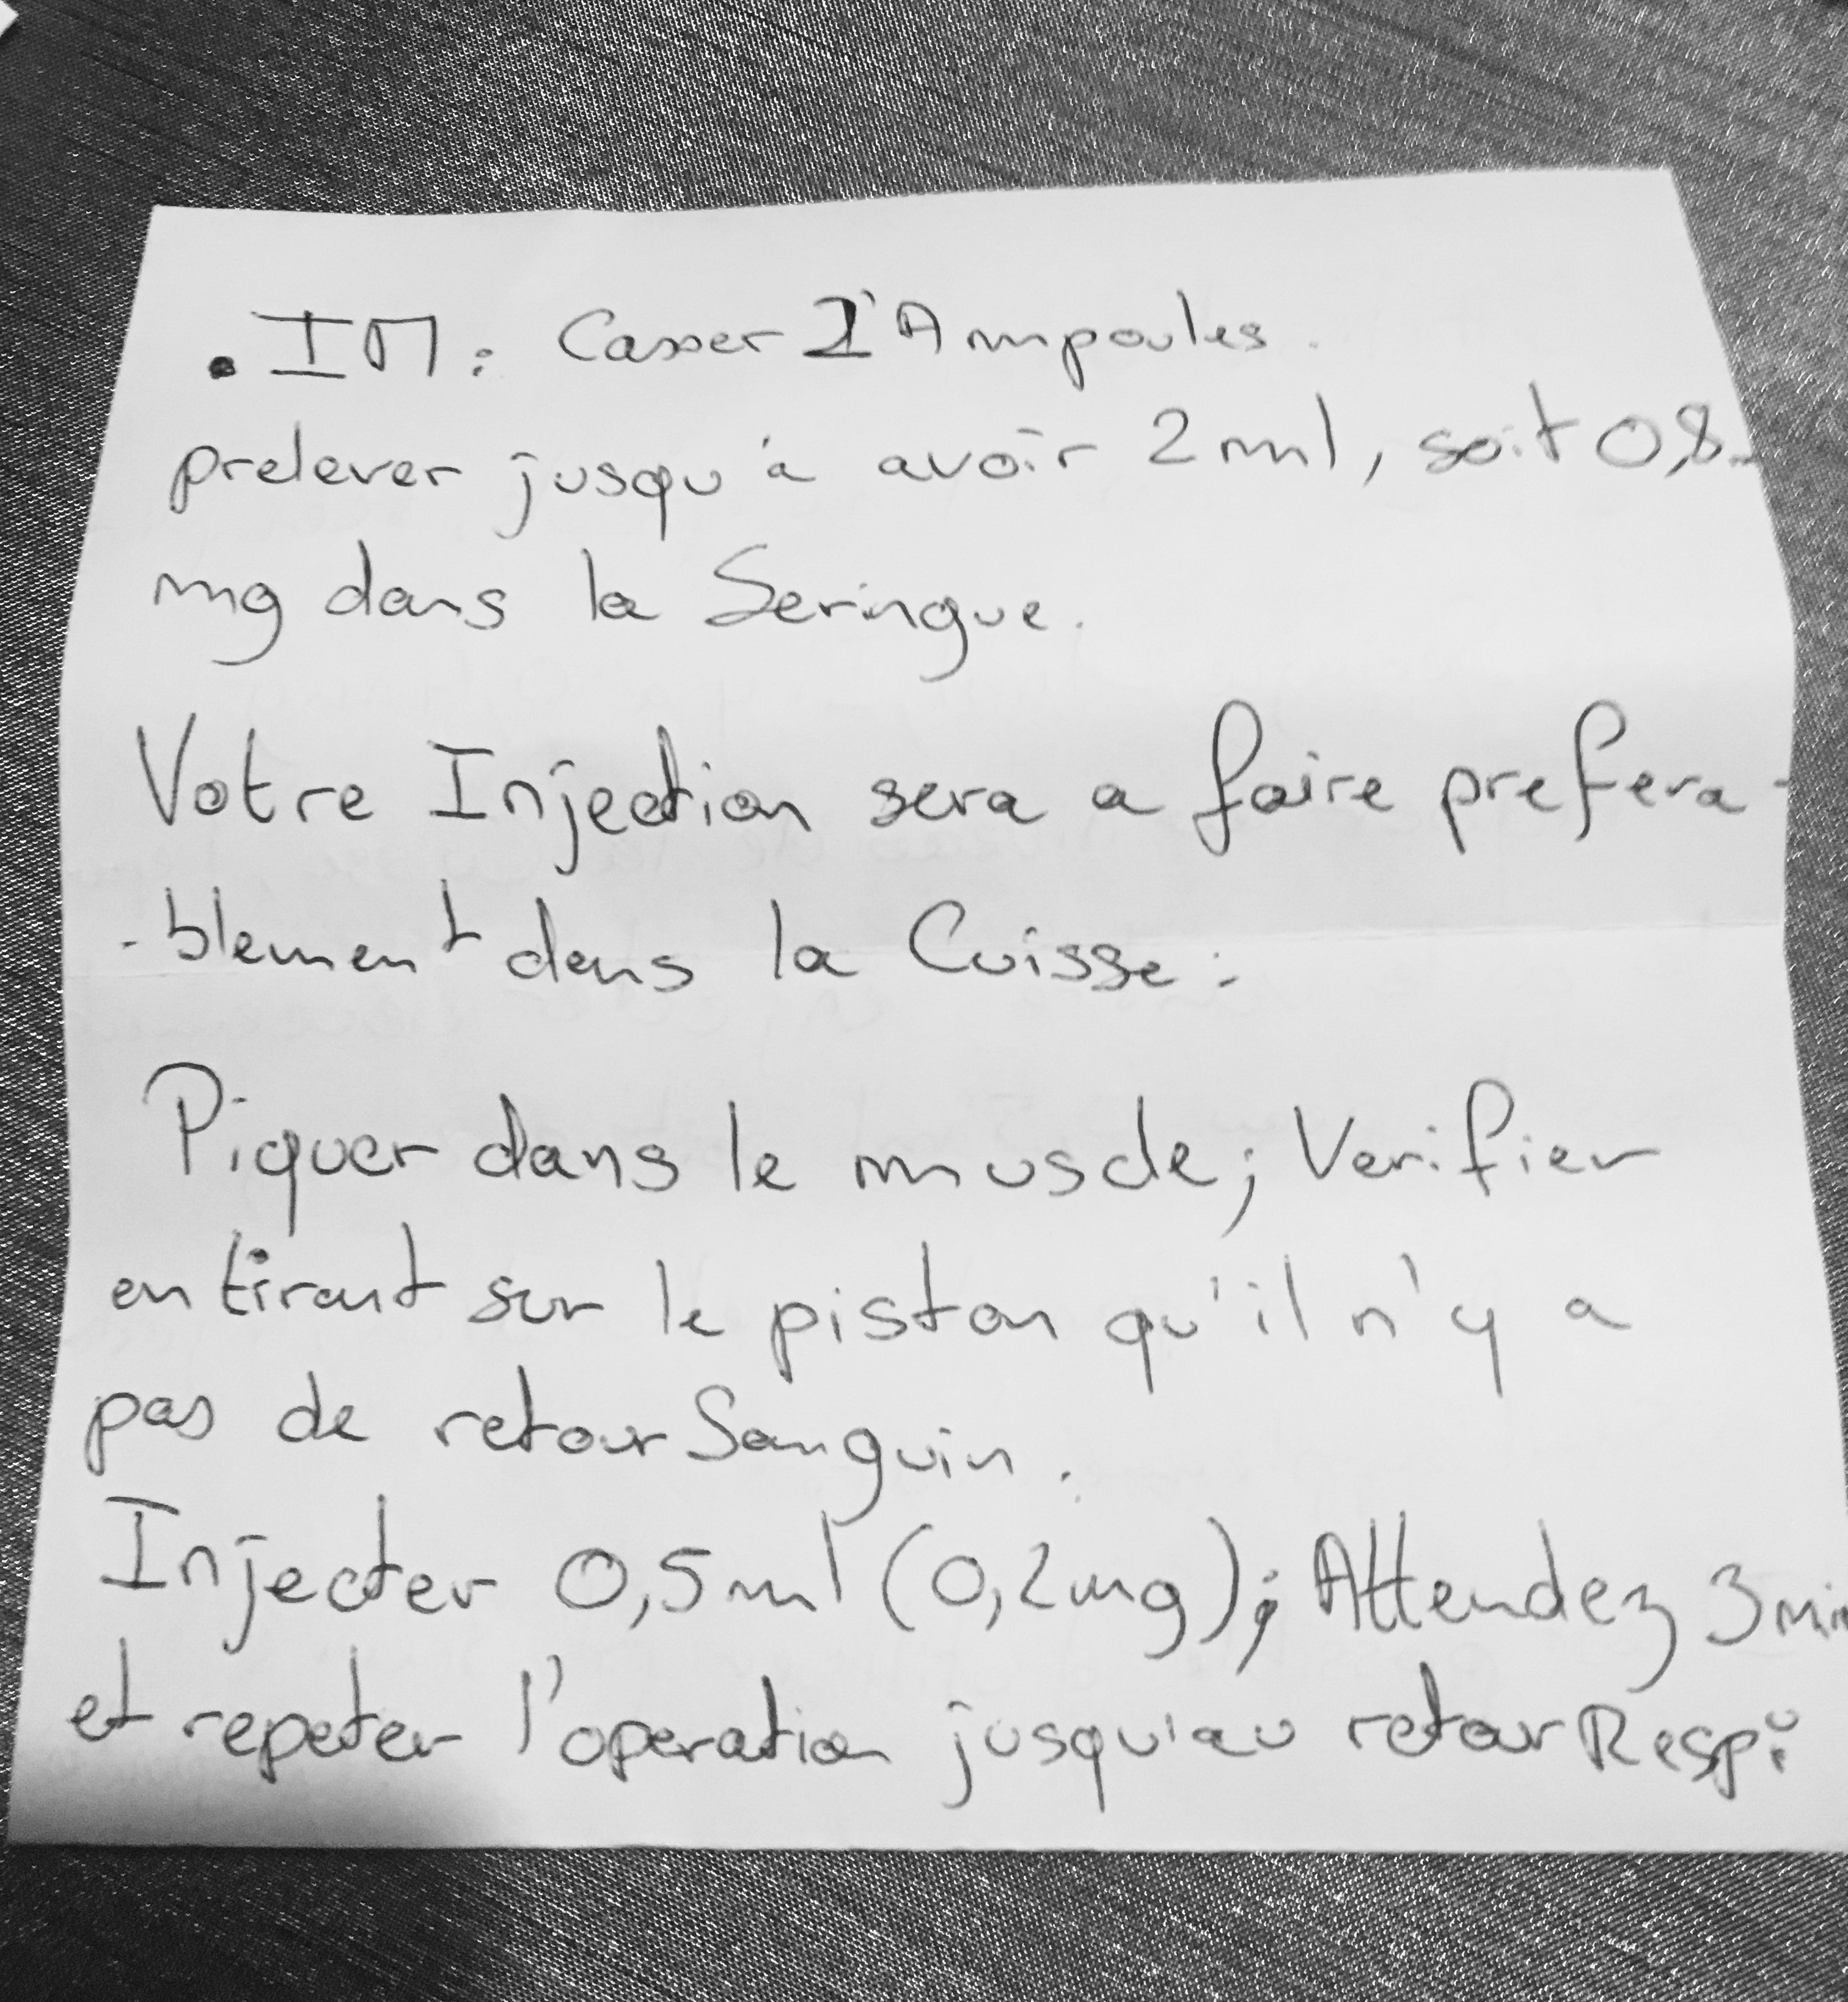 . IM : Casser 2 Ampoules.
prelever jusqu'à avoir 2 ml, soit 0,8
mg dans la Seringue.
Votre Injection sera a faire prefera-
-blement dans la Cuisse :
Piquer dans le muscle ; Verifier
en tirant sur le piston qu'il n'y a
pas de retour Sanguin.
Injecter 0,5 ml (0,2 mg) ; Attendez 3 min
et repeter l'operation jusqu'au retour Respi